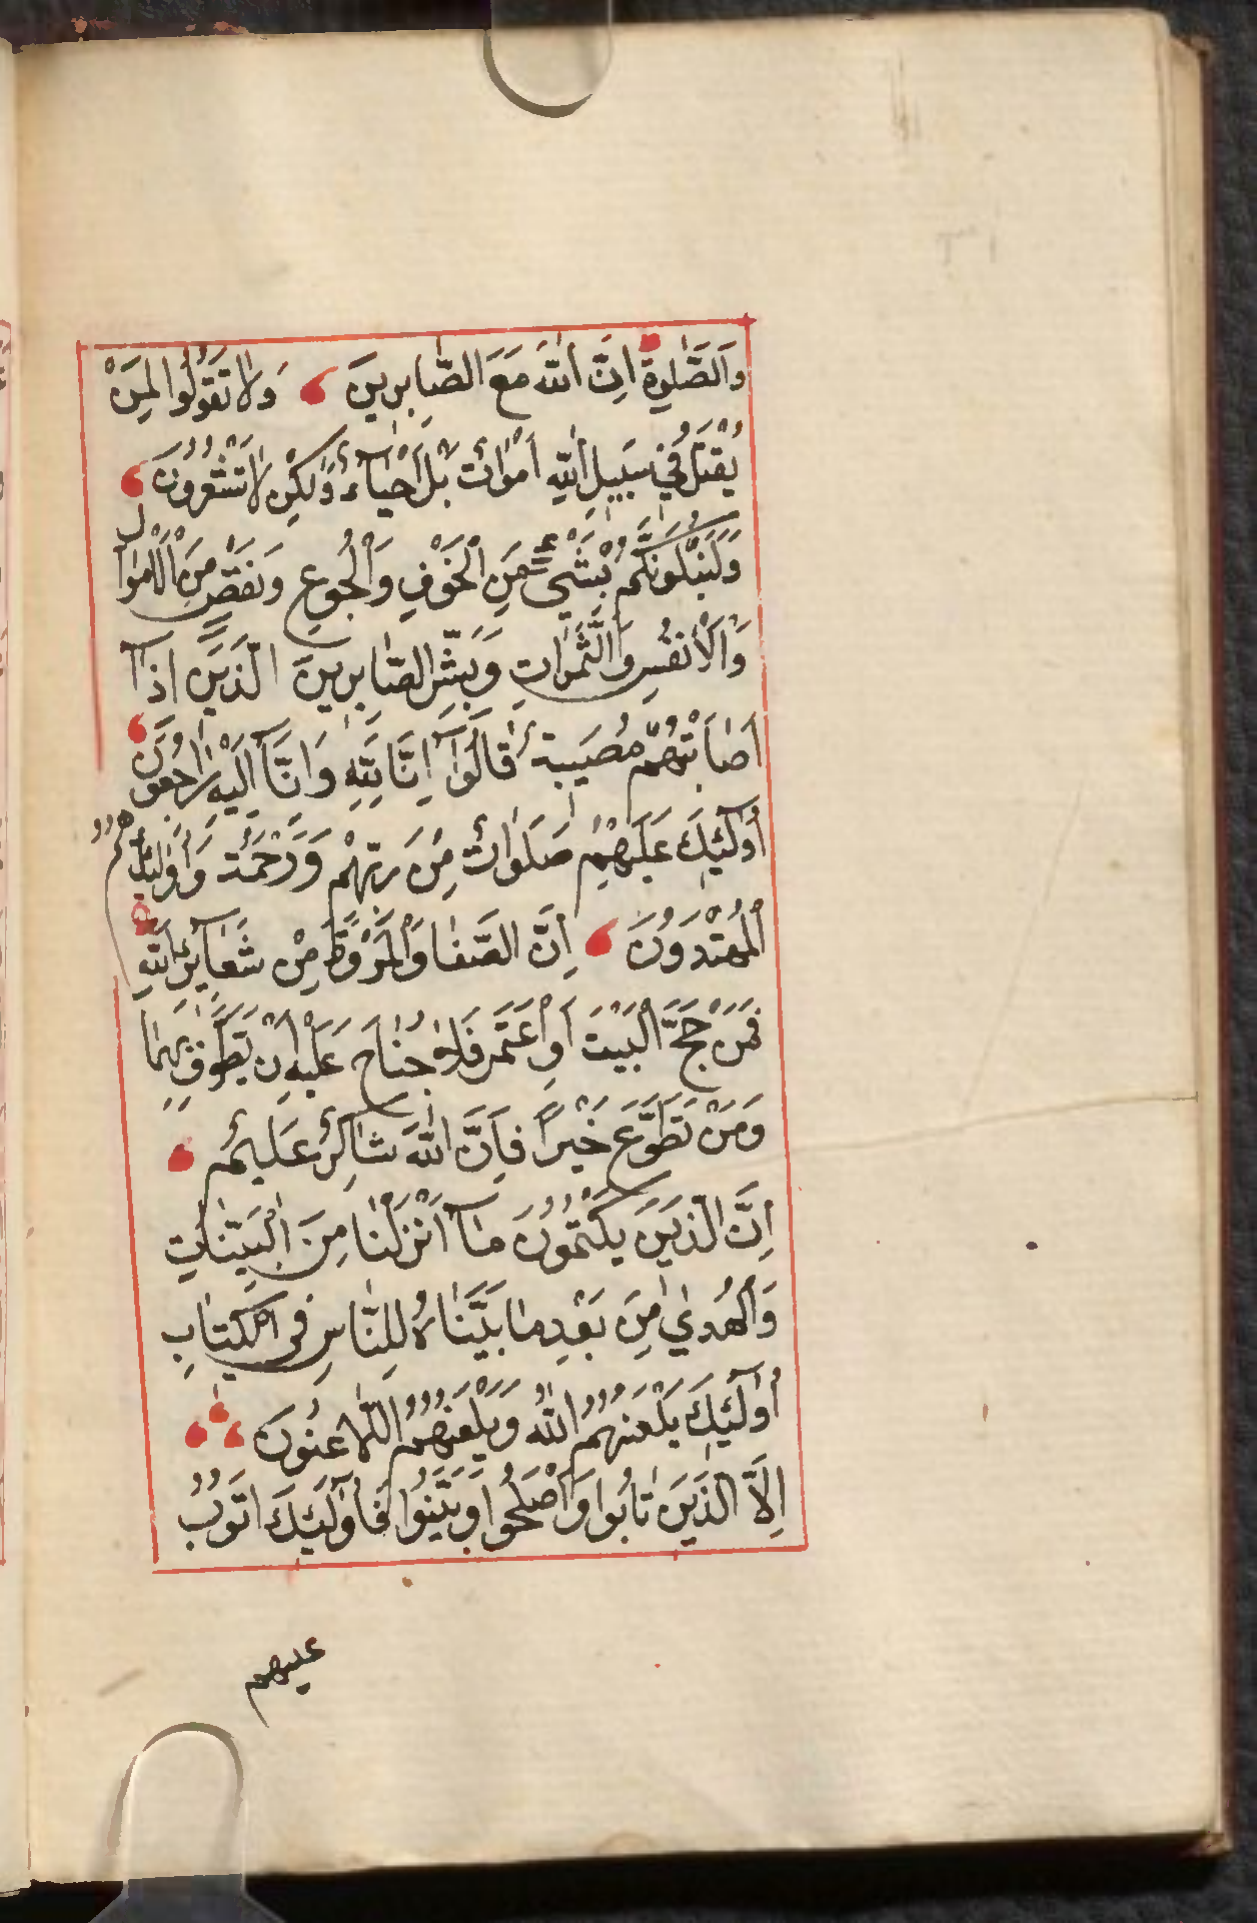 وَالصَّلٰوةِ اِنَّ اللّٰهَ مَعَ الصَّابِرِينَ وَلَا تَقُولُوا لِمَنْ
يُقْتَلُ فِي سَبِيلِ اللّٰهِ اَمْوَاتٌ بَلْ اَحْيَآءٌ وَلٰكِنْ لَا تَشْعُرُونَ
وَلَنَبْلُوَنَّكُمْ بِشَيْءٍ مِنَ الْخَوْفِ وَالْجُوعِ وَنَقْصٍ مِنَ الْاَمْوَالِ
وَالْاَنْفُسِ وَالثَّمَرَاتِ وَبَشِّرِ الصَّابِرِينَ الَّذِينَ اِذَآ
اَصَابَتْهُمْ مُصِيبَةٌ قَالُوٓا اِنَّا لِلّٰهِ وَاِنَّآ اِلَيْهِ رَاجِعُونَ
اُولٰٓئِكَ عَلَيْهِمْ صَلَوَاتٌ مِنْ رَبِّهِمْ وَرَحْمَةٌ وَاُولٰٓئِكَ هُمُ
الْمُهْتَدُونَ اِنَّ الصَّفَا وَالْمَرْوَةَ مِنْ شَعَآئِرِ اللّٰهِ
فَمَنْ حَجَّ الْبَيْتَ اَوِ اعْتَمَرَ فَلَا جُنَاحَ عَلَيْهِ اَنْ يَطَّوَّفَ بِهِمَا
وَمَنْ تَطَوَّعَ خَيْرًا فَاِنَّ اللّٰهَ شَاكِرٌ عَلِيمٌ
اِنَّ الَّذِينَ يَكْتُمُونَ مَآ اَنْزَلْنَا مِنَ الْبَيِّنَاتِ
وَالْهُدٰى مِنْ بَعْدِ مَا بَيَّنَّاهُ لِلنَّاسِ فِي الْكِتَابِ
اُولٰٓئِكَ يَلْعَنُهُمُ اللّٰهُ وَيَلْعَنُهُمُ اللَّاعِنُونَ
اِلَّا الَّذِينَ تَابُوا وَاَصْلَحُوا وَبَيَّنُوا فَاُولٰٓئِكَ اَتُوبُ
عليهم